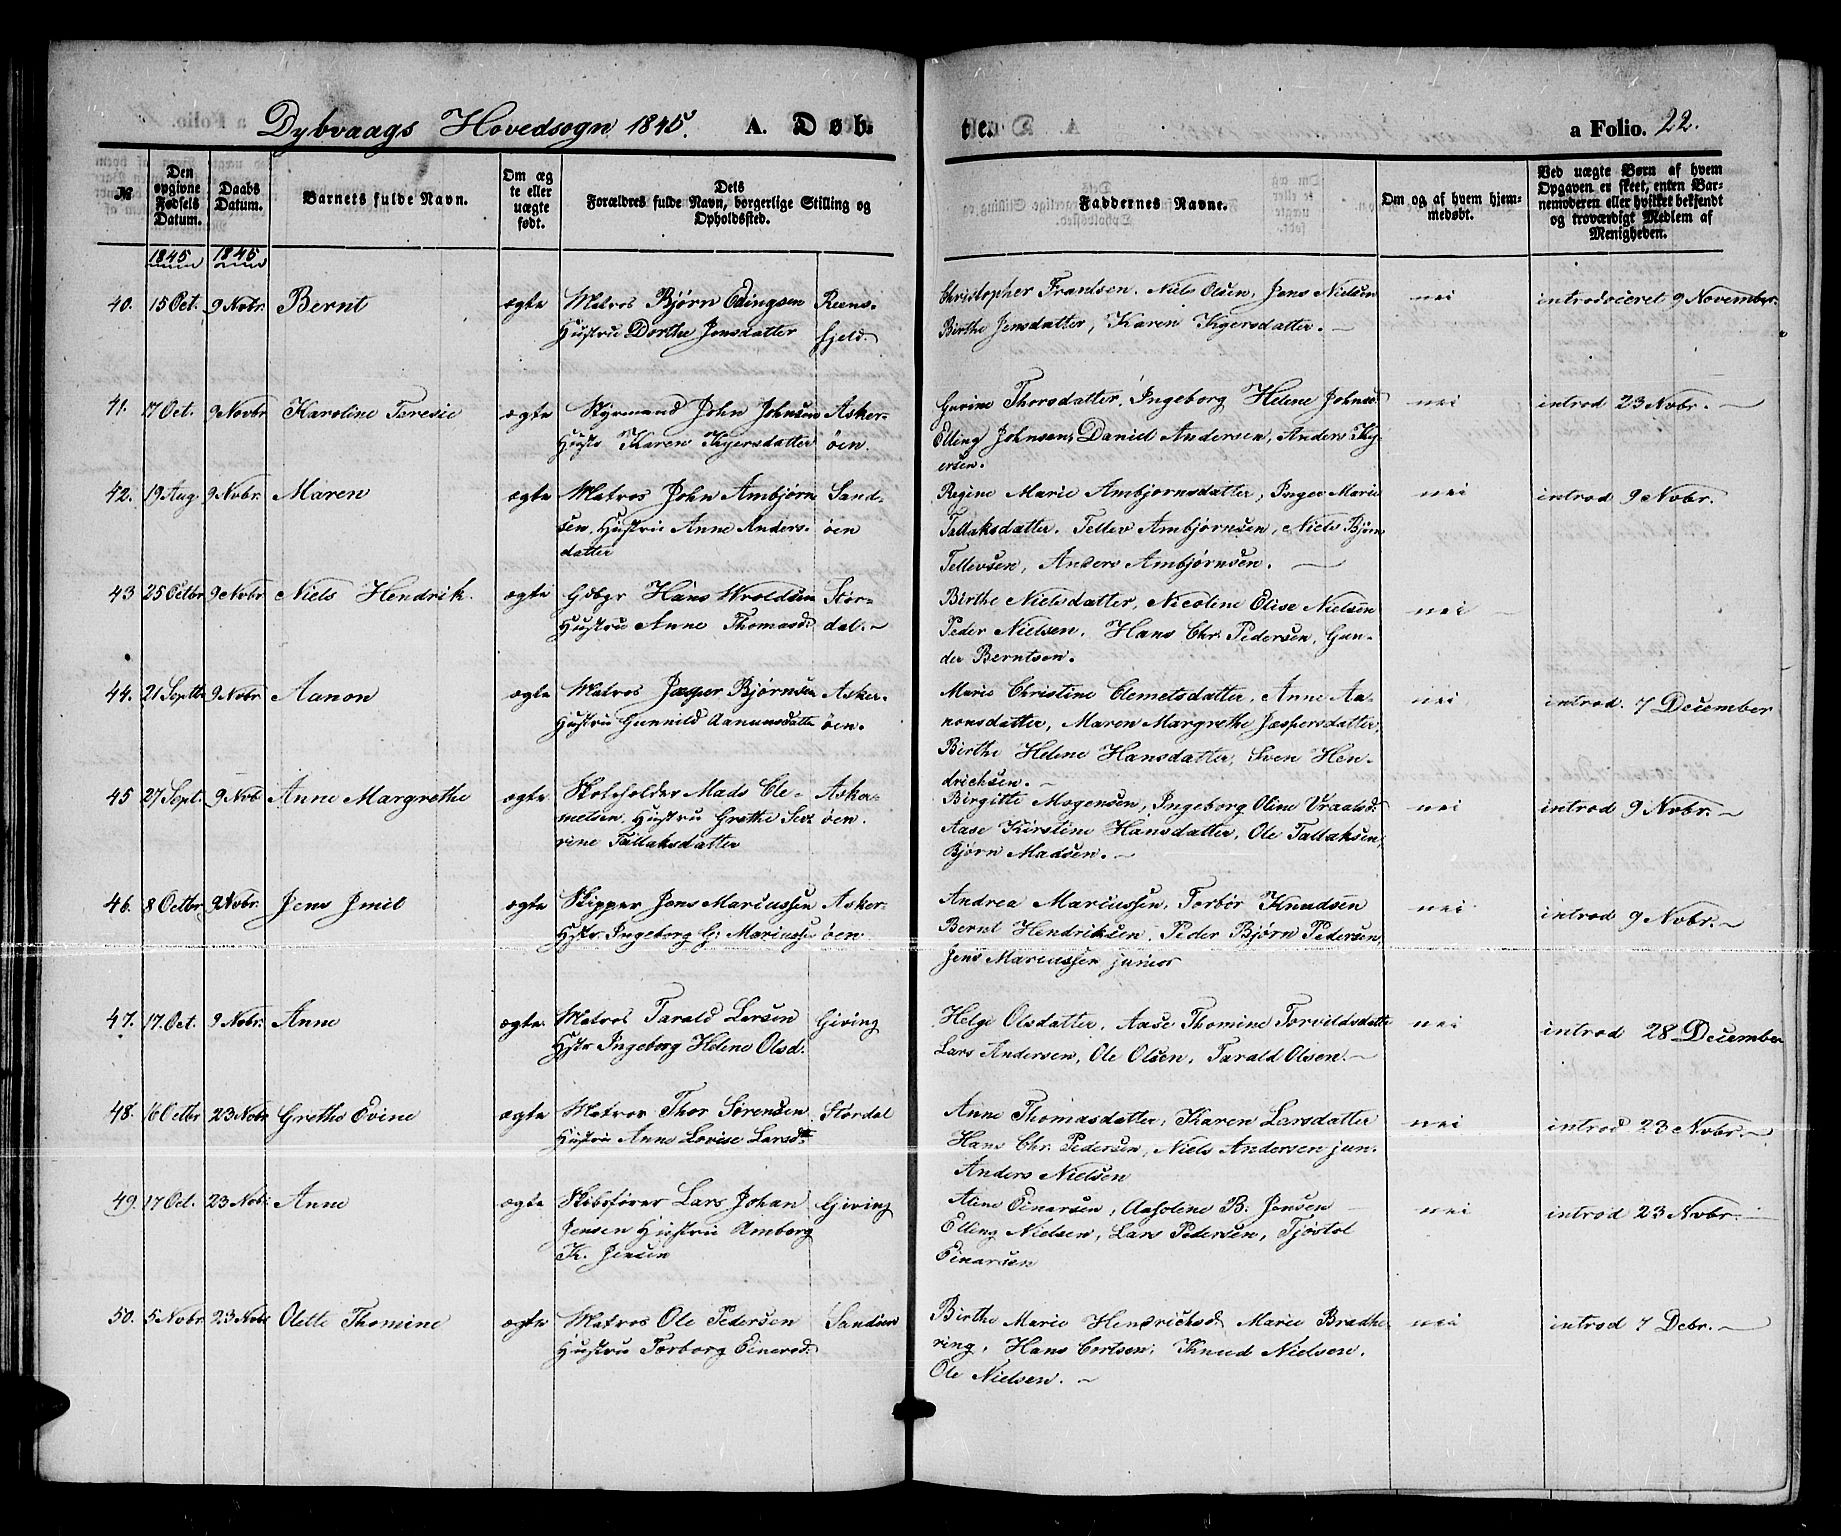 Dybvaags Hovedsogn 1845. A. Døb-
te. a Folio. 22.
№ Den opgivne Fødsels Datum. Daabs Datum. Barnets fulde Navn. Om ægte eller uægte født. Dets Forældres fulde Navn, borgerlige Stilling og Opholdssted. Faddernes Navne. Om og af hvem hjemmedøbt. Ved uægte Børn af hvem Opgaven er skeet, enten Barnemoderen eller hvilket bekjendt og troværdigt Medlem af Menigheden.
1845 1845
40. 15 Oct. 9 Nobr. Bernt ægte Matros Bjørn Edingsen Reens- Christopher Frantsen. Niels Olsen, Jens Nielsen nei introduceret 9 November.
Hustrue Dorthe Jensdatter fjeld. Birthe Jensdatter, Karen Kgersdatter. —
41. 7 Oct. 9 Novbr Karoline Teresie ægte Styrmand John Johnsen Asker- Gurine Thorsdatter, Ingeborg Helene Johnsd. nei introd 23 Nobr. —
Husts Karen Kgersdatter öen. Elling Johnsen, Daniel Andersen, Anders Kg-
ersen.
42. 19 Aug 9 Nobr. Maren ægte Matros John Ambjørn Sand- Regine Marie Ambjørnsdatter, Inger Marie nei introd 9 Nobr.
sen, Hustrue Anne Anders- öen Tallaksdatter. Tellev Ambjørnsen, Niels Bjørn
datter Tellevsen, Anders Ambjørnsen. —
43 25 Octbr 9 Nobr Niels Hendrik. ægte Gdbgr Hans Wroldsen Stør- Birthe Nielsdatter, Nicoline Elise Nielsen nei
Hustru Anne Thomasd: dal. — Peder Nielsen. Hans Chr. Pedersen, Gun-
der Berntsen.
44. 21 Septbr 9 Nobr Aanon ægte Matros Jæsper Bjørnsen Asker- Marie Christine Clemetsdatter, Anne Aa- nei introd. 7 December
Hustru Gunnild Aanunsdatte öen. nonsdatter, Maren Margrethe Jæspersdatter,
Birthe Helene Hansdatter, Sven Hen-
dricksen. —
45 27 Sept. 9 Nob Anne Margrethe ægte Skoleholder Mads Cle- Aske- Birgitte Mogensen, Ingeborg Oline Vraalsd: nei introd 9 Nobr. —
metsen, Hustru Grethe Se- öen. Aase Kirstine Hansdatter, Ole Tallaksen,
rine Tallaksdatter Bjørn Madsen. —
46. 8 Octbr 9 Nobr. Jens Jmil ægte Skipper Jens Marcussen Asker- Andrea Marcussen, Torbør Knudsen nei introd 9 Nobr. —
Hustr Ingeborg G: Marcusse öen Bernt Hendriksen. Peder Bjørn Pedersen,
Jens Marcussen junior
47. 17. Oct. 9 Nobr. Anne ægte Matros Tarald Larsen Giving Helge Olsdatter, Aase Thomine Torvildsdatte nei introd 28 December
Hstr Ingeborg Helene Olsd. Lars Andersen, Ole Olsen, Tarald Olsen. —
48. 16 Octbr 23 Nobr Grethe Evine ægte Matros Thor Sørensen Størdal Anne Thomasdatter, Karen Larsdatter nei introd 23 Nobr. —
Hustru Anne Lovise Larsd Hans Chr. Pedersen, Niels Andersen jun.
Anders Nielsen
49. 17 Oct. 23 Nobr Anne ægte Skibsfører Lars Johan Giving Aline Einarsen, Aasoline B. Jensen nei introd 23 Nobr. —
Jensen Hustru Amborg Elling Nielsen, Lars Pedersen, Tjøstol
K. Jensen Einarsen
50. 5 Nobr 23 Nobr Olette Thomine ægte Matros Ole Pedersen Sandøen Birthe Marie Hendricksd. Marie Bradhe- nei introd 7 Debr. —
Hustru Torborg Einersd. ring, Hans Bertsen, Knud Nielsen.
Ole Nielsen. —